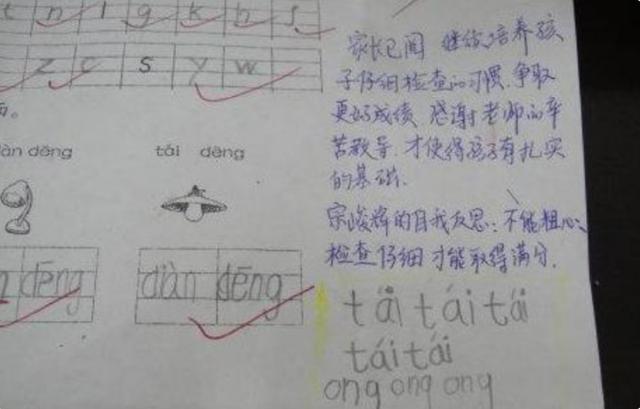 t n l g k h s
z c s y w
面。
家长已阅 继续培养孩
àn dēng tái dēng
子仔细检查的习惯.争取
更好成绩 感谢老师的辛
苦教导.才使得孩子有扎实
的基础.
宗峻辉的自我反思:不能粗心
dēng diàn dēng
检查仔细才能取得满分.
tái tái tái
tái tái
ong ong ong